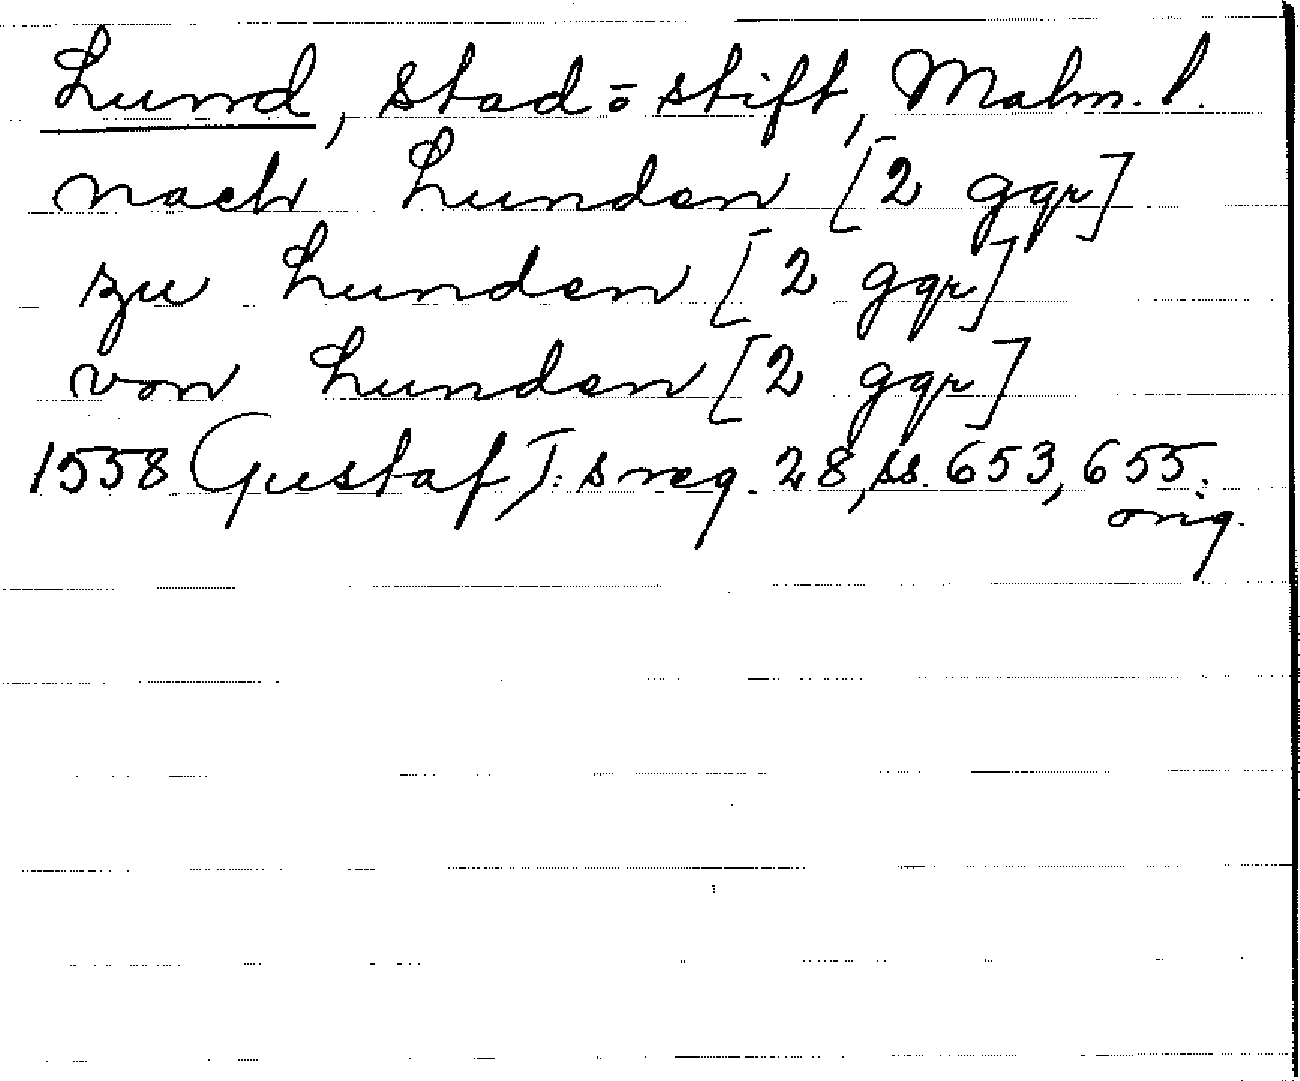 Lund, stad o stift, Malm. l.
nach Lunden [2 ggr]
zu Lunden [2 ggr]
von Lunden [2 ggr]
1558 Gustaf I:s reg. 28, ss. 653, 655.
orig.